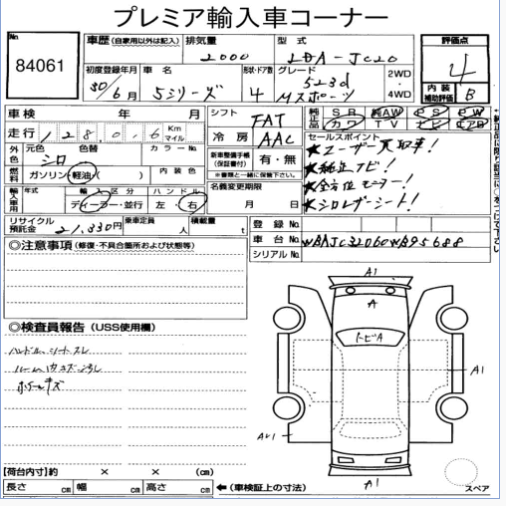 プレミア輸入車コーナー
No
84061
車歴 (自家用以外は記入)
排気量
2000
型式
LDA-JC20
評価点
4
初度登録年月
30/6月
車名
5シリーズ
形状・ドア数
4
グレード
523d
Mスポーツ
2WD
・
4WD
内装
補助評価
B
車検 年 月
走行 128,016 Km マイル
外色
元色 色替
シロ
カラーNo
燃料
ガソリン・軽油
内装色
輸入車用
年式
輸入区分
ディーラー・並行
ハンドル
左・右
リサイクル預託金
21,330円
乗車定員
人
積載量
t
シフト
FAT
冷房
AAC
新車整備手帳
(保証書付)
有・無
※書類と一緒に保険下さい。
名義変更期限
月 日
純正品
SR AW PS PW
カワ TV
セールスポイント
★ユーザー買取車!
★純正ナビ!
★全方位モニター!
★シロレザーシート!
登録No.
車台No.
WBAJC32060WB95688
シリアルNo.
◎注意事項 (修復・不具合箇所および状態等)
◎検査員報告 (USS使用欄)
ハンドル、シートスレ
ホイールキズ
A1
A
トビA
A1
A1
スペア
【荷台内寸】約 × × (cm)
長さ cm 幅 cm 高さ cm
←(車検証上の寸法)